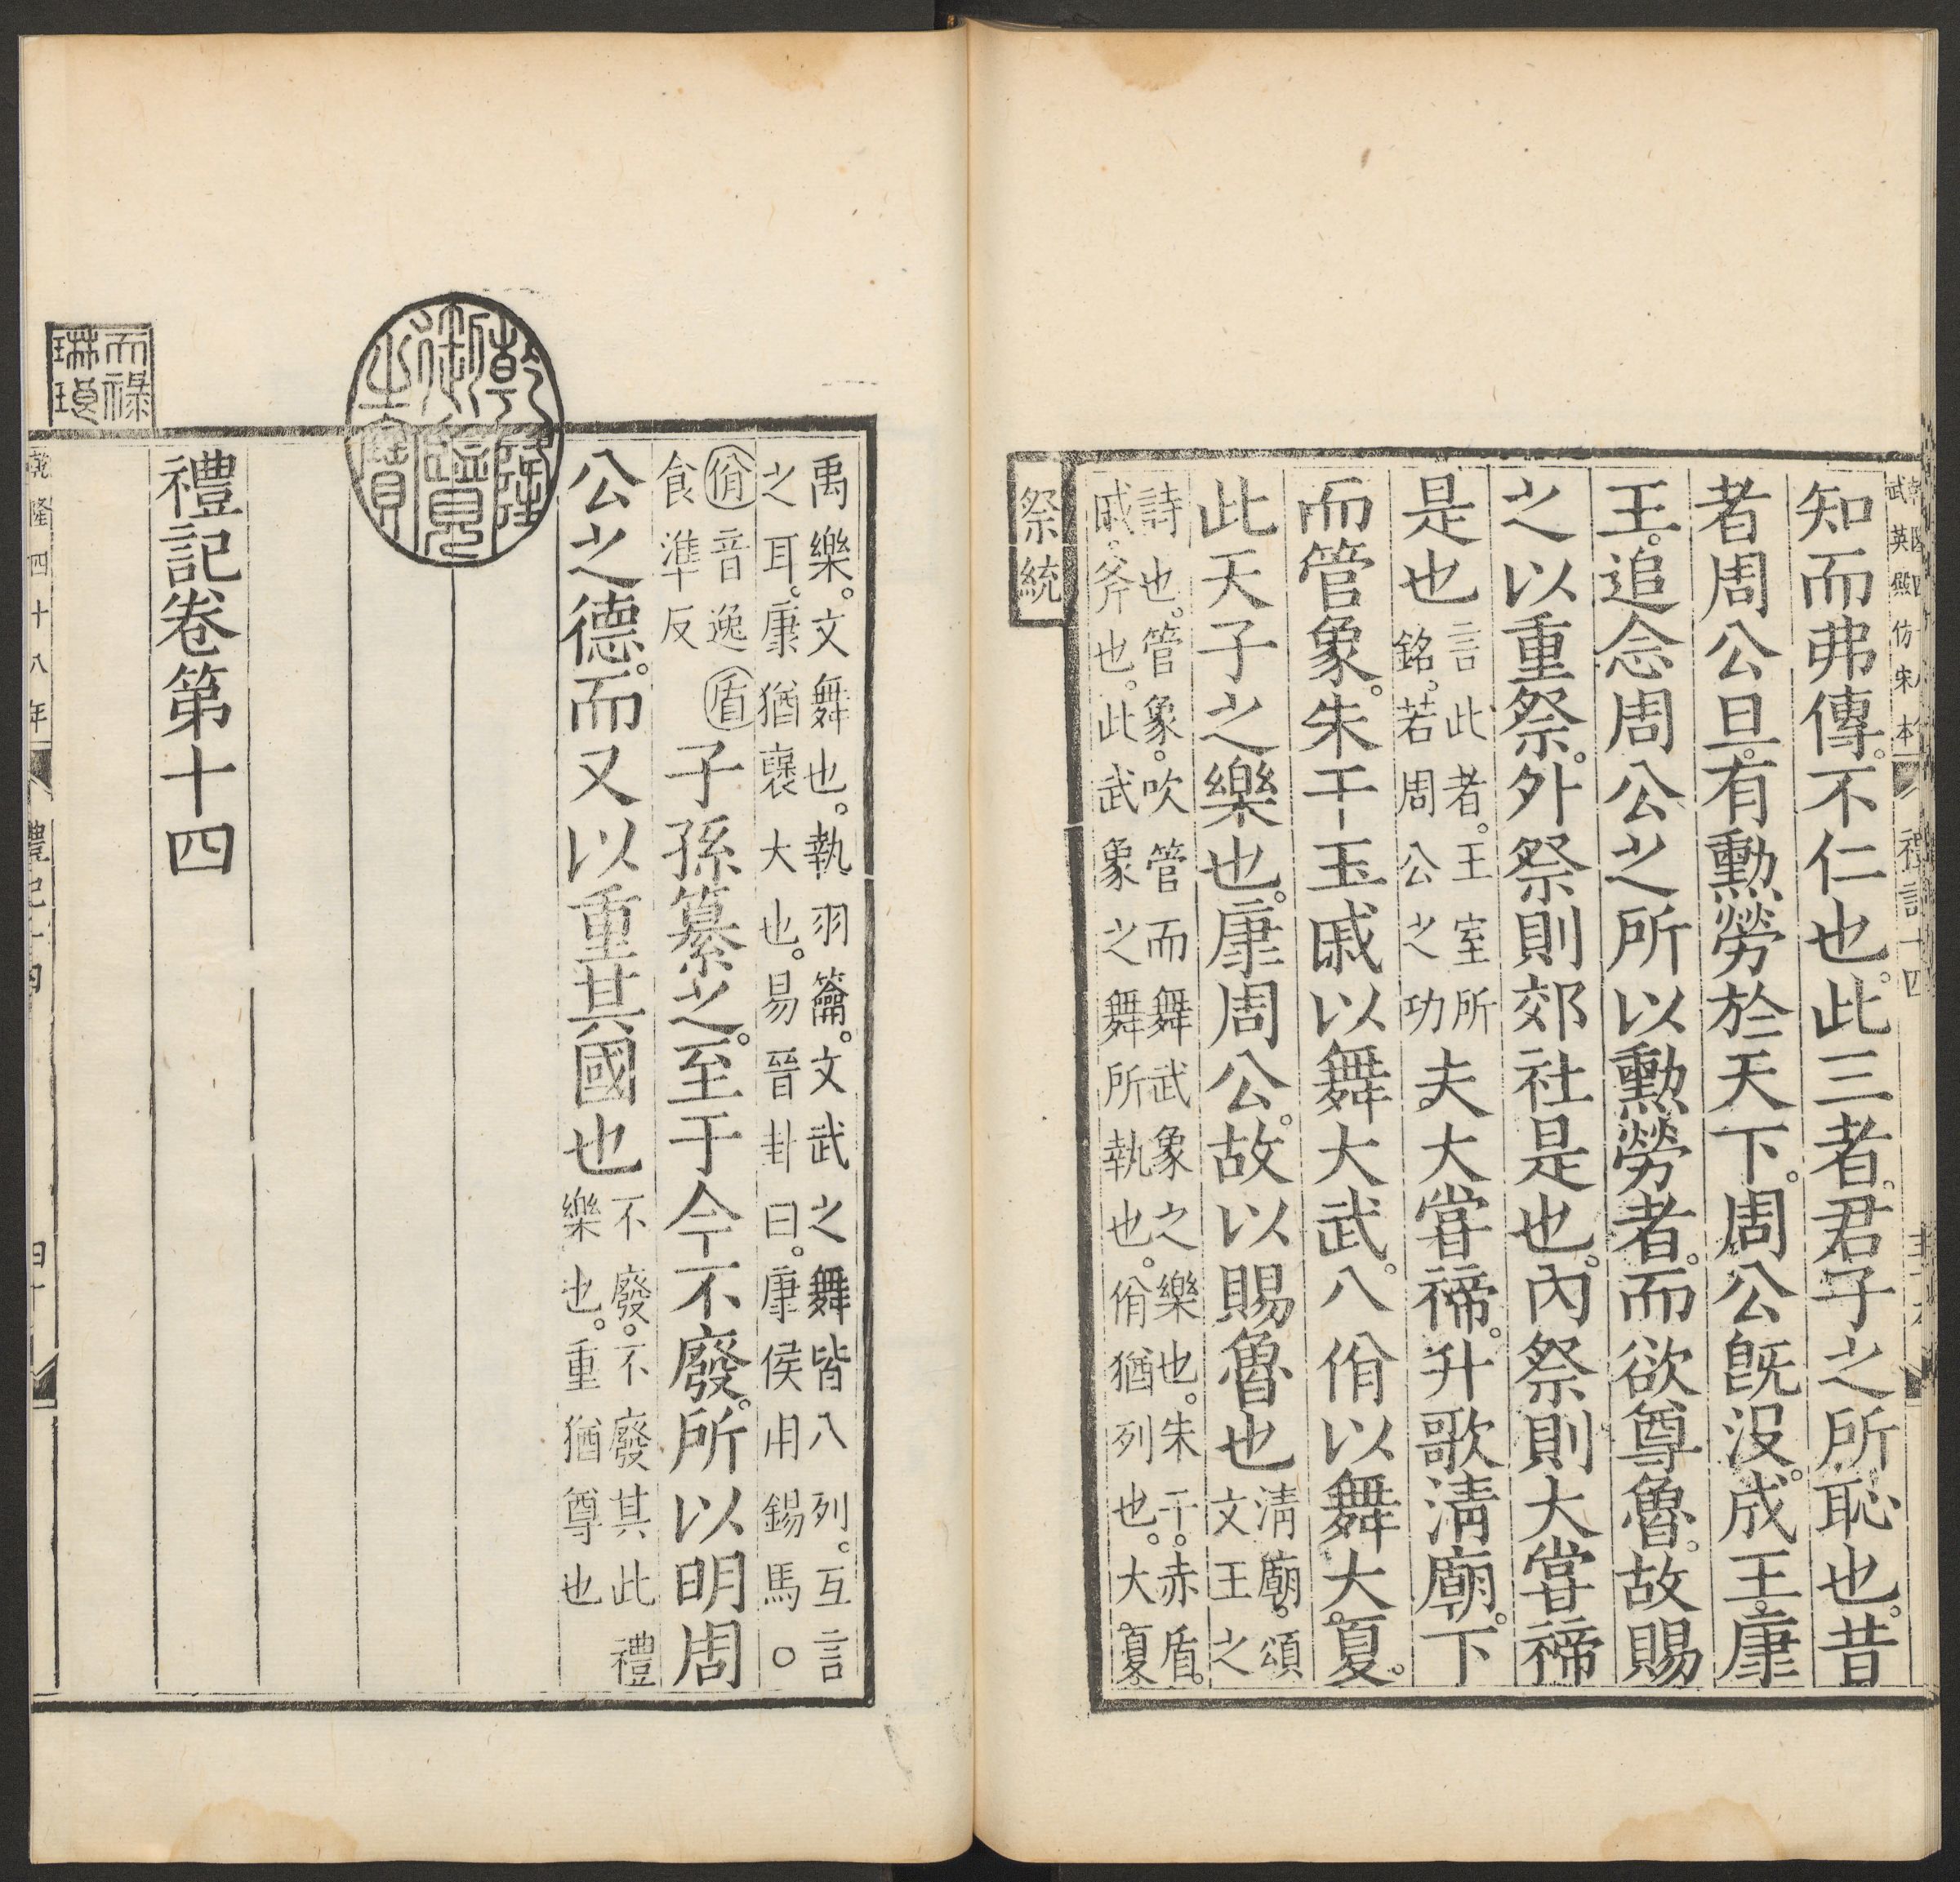 武英殿仿宋本
禮記十四
知而弗傳。不仁也。此三者。君子之所恥也。昔
者周公旦。有勲勞於天下。周公旣沒。成王。康
王。追念周公之所以勲勞者。而欲尊魯。故賜
之以重祭。外祭則郊社是也。內祭則大甞禘
是也言此者。王室所
銘。若周公之功夫。大甞禘。升歌淸廟。下
而管象。朱干玉戚以舞大武。八佾以舞大夏。
此天子之樂也。康周公。故以賜魯也淸廟。頌
文王之
詩也。管象。吹管而舞武象之樂也。朱干。赤盾。
戚。斧也。此武象之舞所執也。佾猶列也。大夏。
祭統
禹樂。文舞也。執羽籥。文武之舞皆八列。互言
之耳。康猶襃大也。易晉卦曰。康侯用錫馬。○
佾音逸盾
食準反子孫纂之。至于今不廢。所以明周
公之德。而又以重其國也不廢。不廢其此禮
樂也。重猶尊也
乾隆御覽之寶
禮記卷第十四
天祿琳琅
乾隆四十八年
禮記十四
四十